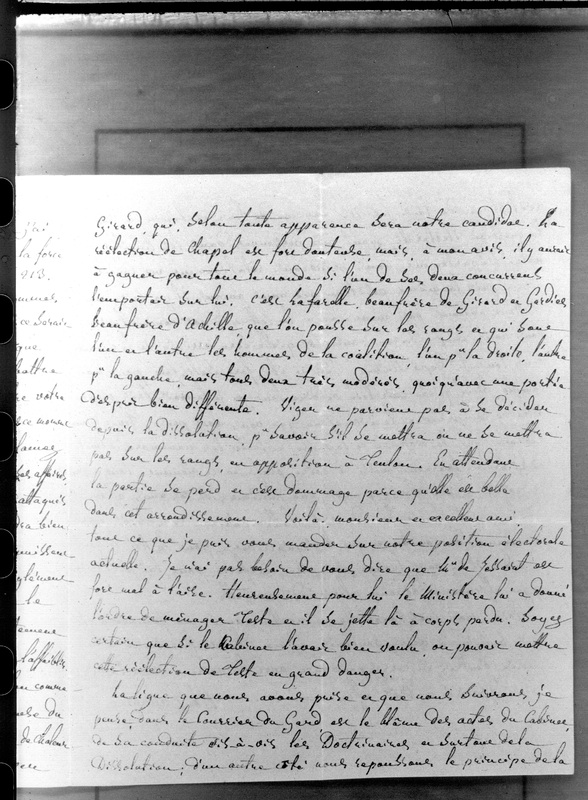 Girard, qui, selon toute apparence sera notre candidat. La
réélection de Chapel est fort douteuse, mais, à mon avis, il y aurait
à gagner pour tout le monde si l'un de ses deux concurrens
l'emportait sur lui. c'est Lafarelle, beaufrère de Girard et
beaufrère d'Achille, que l'on pousse sur les rangs et qui sont
l'un et l'autre les hommes de la coalition, l'un pr la droite, l'autre
pr la gauche, mais tous deux très modérés, quoiqu'avec une portée
d'esprit bien différente. ne parvient pas à se décider
depuis la dissolution, pr savoir s'il se mettra ou ne se mettra
pas sur les rangs, en opposition à Teulon. En attendant
la partie se perd et c'est dommage parce qu'elle est belle
dans cet arrondissement. Voilà, monsieur et excellent ami
tout ce que je puis vous mander sur notre position électorale
actuelle. Je n'ai pas besoin de vous dire que Mr de Jessaint est
fort mal à l'aise. Heureusement pour lui le Ministère lui a donné
l'ordre de ménager Teste et il se jette là à corps perdu. Soyez
certain que si le Cabinet l'avait bien voulu, on pouvait mettre
cette réélection de Teste en grand danger.
La ligne que nous avons prise et que nous suivrons je
pense, dans le Courrier du Gard est le blâme des actes du Cabinet,
de sa conduite vis-à-vis les Doctrinaires et surtout de la
Dissolution; d'un autre côté nous repoussons le principe de la